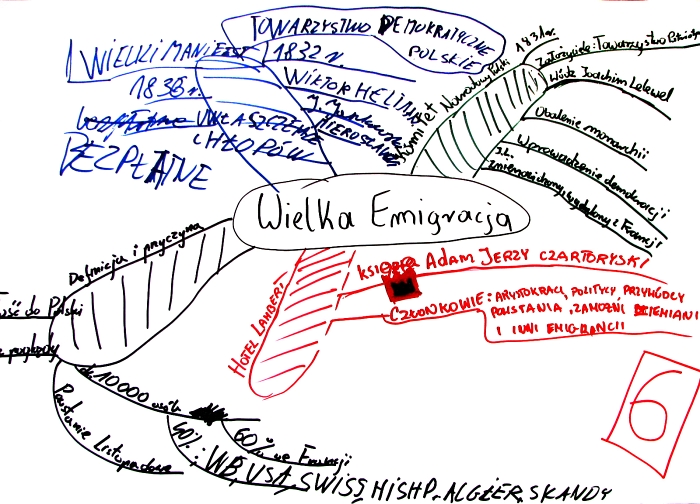 TOWARZYSTWO DEMOKRATYCZNE
POLSKIE
1832 r.
WIELKI MANIFEST
1836 r.
UWŁASZCZENIE
CHŁOPÓW
BEZPŁATNE
WIKTOR HELTMAN
J.
MIEROSŁAWSKI
Komitet Narodowy Polski
1831r.
Założyciele: Towarzystwo
Wódz Joachim Lelewel
Obalenie monarchii
Wprowadzenie demokracji
z Francji
Wielka Emigracja
Definicja i przyczyna
do Polski
do 10000 osób
Powstanie Listopadowe
60% we Francji
40%: WB, USA, SWISS, HISHP. ALGIER, SKANDY
HOTEL LAMBERT
książę ADAM JERZY CZARTORYSKI
CZŁONKOWIE: ARYSTOKRACI, POLITYCY PRZYWÓDCY
POWSTANIA, ZAMOŻNI ZIEMIANI
I INNI EMIGRANCI
6